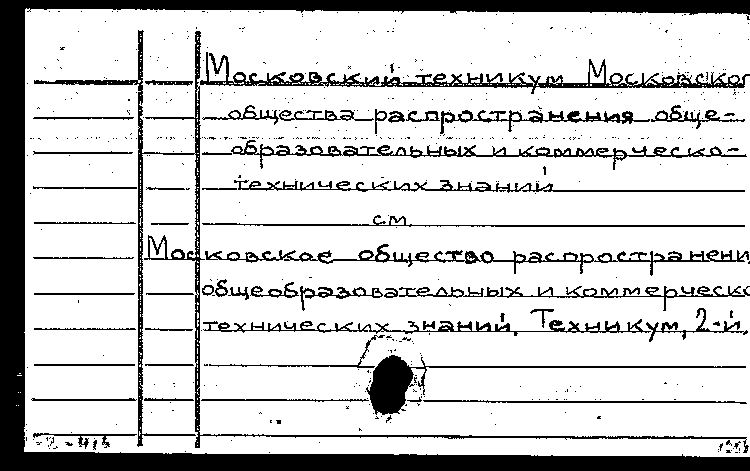 Московский техникум Московског
общества распространения обще-
образовательных и коммерческо-
технических знаний
см.
Московское общество распространени
общеобразовательных и коммерческо
технических знаний. Техникум, 2-й.